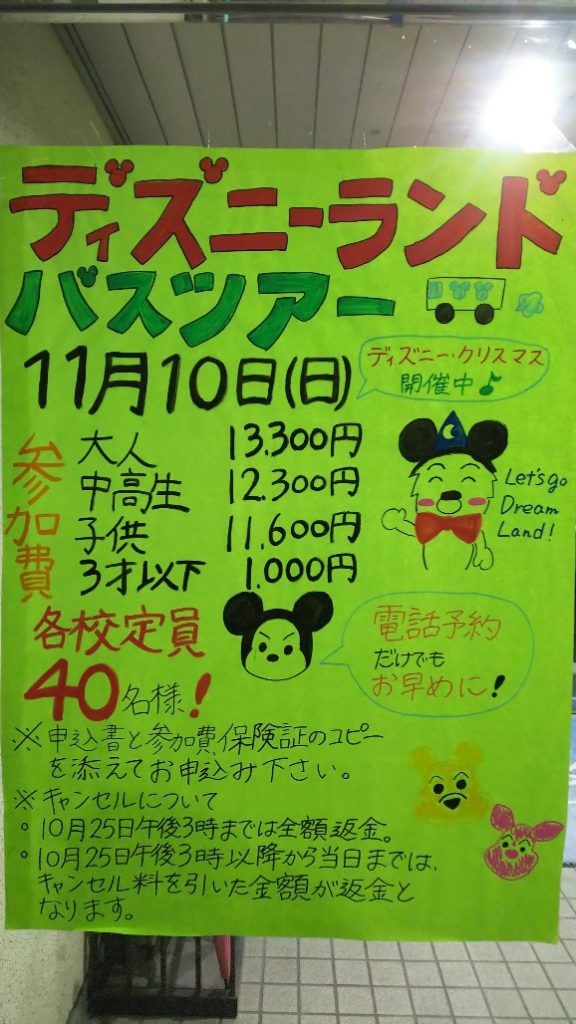 ディズニーランド
バスツアー
11月10日(日)
ディズニー・クリスマス
開催中♪
参加費
大人 13.300円
中高生 12.300円
子供 11.600円
3才以下 1.000円
Let's go
Dream
Land!
各校定員
40名様!
電話予約
だけでも
お早めに!
※申込書と参加費、保険証のコピー
を添えてお申込み下さい。
※キャンセルについて
○10月25日午後3時までは全額返金。
○10月25日午後3時以降から当日までは、
キャンセル料を引いた金額が返金と
なります。